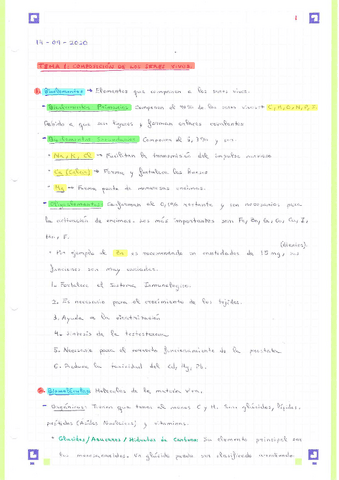 1
14-09-2020
TEMA 1: COMPOSICIÓN DE LOS SERES VIVOS.
Bioelementos → Elementos que componen a los seres vivos.
Bioelementos Primarios: Componen el 95% de los seres vivos → C, H, O, N, P, S.
Debido a que son ligeros y forman enlaces covalentes
Bioelementos Secundarios: Componen el
Na, K, Cl → Facilitan la transmisión del impulso nervioso
Ca (Calcio) → Forma y fortalece los huesos
Mg → Forma parte de numerosas enzimas.
Oligoelementos: Conforman el 0,1% restante y son necesarios para
la activación de enzimas. Los más importantes son: Fe,
Mn, F.
(diarios).
Por ejemplo el Zn es recomendado en cantidades de 15 mg, sus
funciones son muy variadas.
1. Fortalece el Sistema Inmunológico.
2. Es necesario para el crecimiento de los tejidos.
3. Ayuda a la cicatrización
4. Síntesis de la testosterona
5. Necesario para el correcto funcionamiento de la próstata
6. Reduce la toxicidad del Cd, Hg, Pb.
Biomoléculas: Moléculas de la materia viva.
Orgánicas: Tienen que tener al menos C y H. Son glúcidos, lípidos,
prótidos (Ácidos Nucleicos) y vitaminas.
Glúcidos/Azúcares/Hidratos de Carbono: Su elemento principal son
los monosacáridos. Un glúcido puede ser clasificado